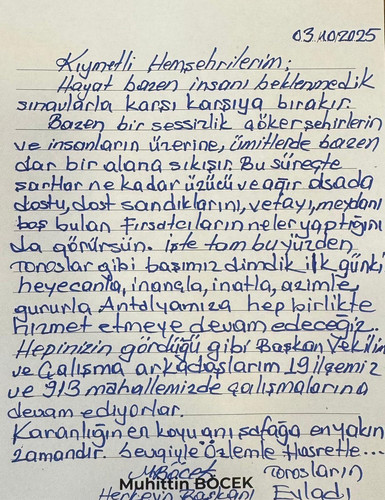 03.10.2025
Kıymetli Hemşehrilerim;
Hayat bazen insanı beklenmedik
sınavlarla karşı karşıya bırakır.
Bazen bir sessizlik çöker şehirlerin
ve insanların üzerine, ümitlerde bazen
dar bir alana sıkışır. Bu süreçte
şartlar ne kadar üzücü ve ağır olsada
dostu, dost sandıklarını, vefayı, meydanı
boş bulan fırsatcıların neler yaptığını
da görürsün. işte tam bu yüzden
Toroslar gibi başımız dimdik ilk günki
heyecanla, inançla, inatla, azimle,
gururla Antalyamıza hep birlikte
hizmet etmeye devam edeceğiz.
Hepinizin gördüğü gibi Başkan Vekilim
ve Çalışma arkadaşlarım 19 ilçemiz
ve 913 mahallemizde çalışmalarına
devam ediyorlar.
Karanlığın en koyu anı şafağa en yakın
zamandır. Sevgiyle Özlemle Hasretle...
M.Böcek Torosların
Muhittin BÖCEK
Herkesin Başkanı Evladı